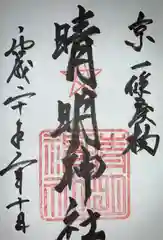 京一條戻橋
晴明神社
平成二十年月十日